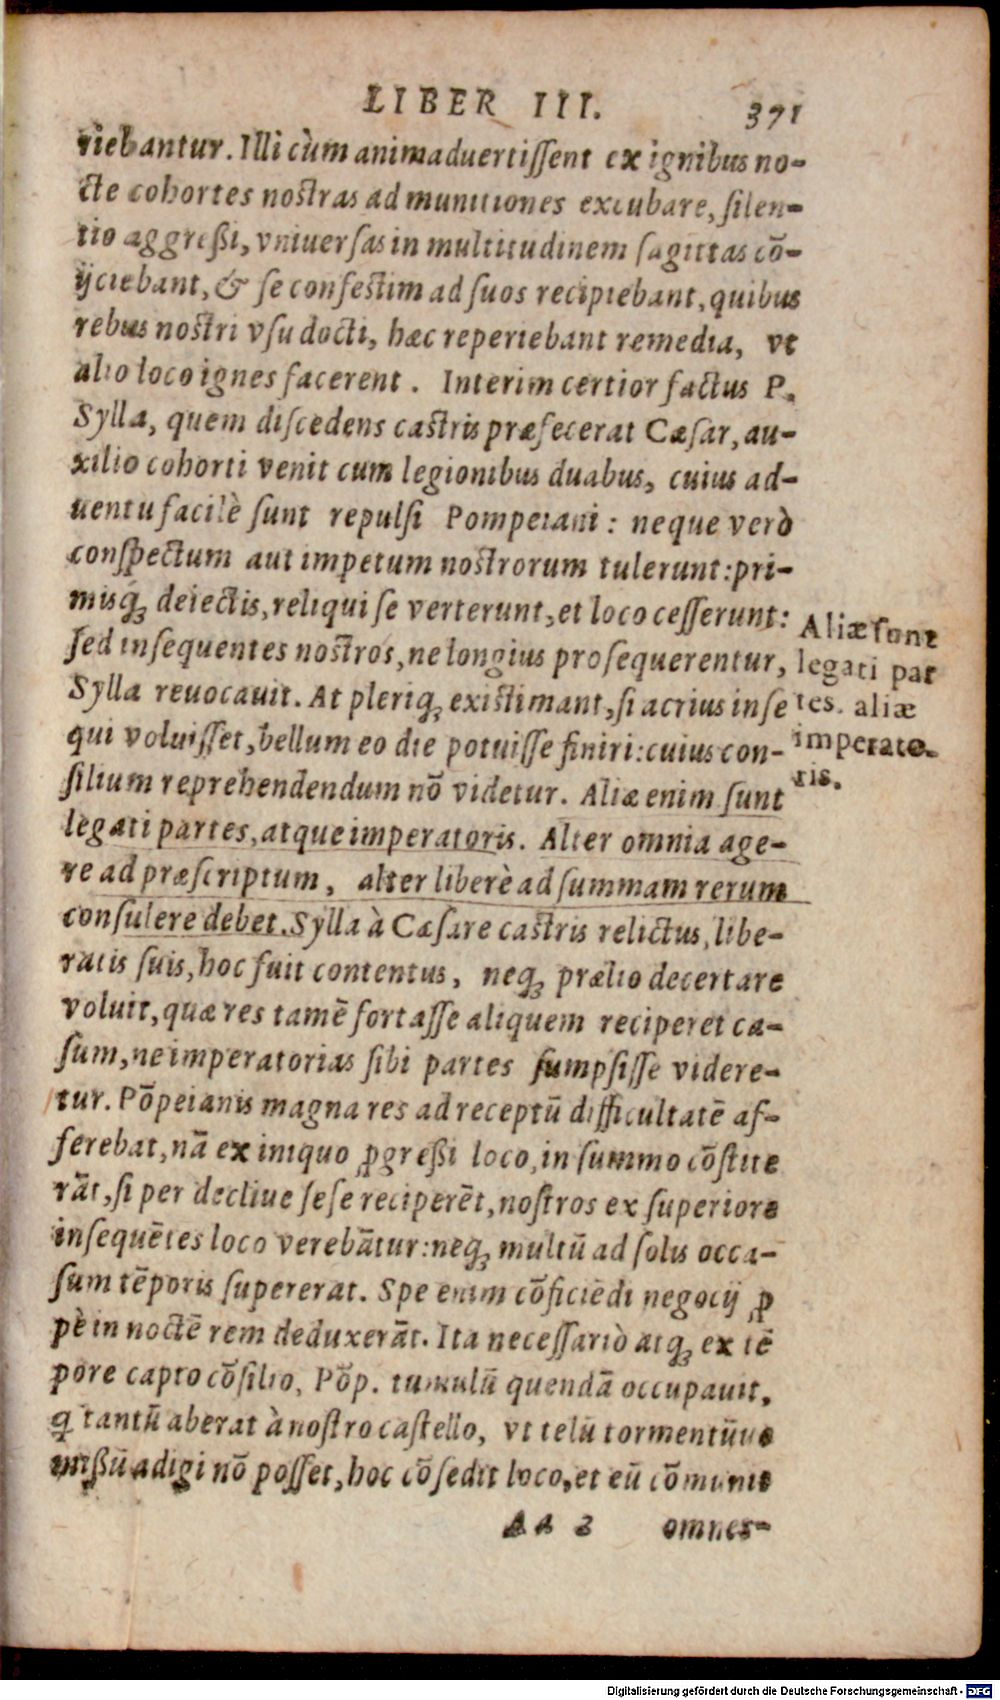 LIBER III. 371
riebantur. Illi cùm animaduertiſſent ex ignibus no-
cte cohortes noſtras ad munitiones excubare, ſilen-
tio aggreßi, vniuerſas in multitudinem ſagittas cō-
ijciebant, & ſe confeſtim ad ſuos recipiebant, quibus
rebus noſtri vſu docti, hæc reperiebant remedia, vt
alio loco ignes facerent. Interim certior factus P.
Sylla, quem diſcedens caſtris præfecerat Cæſar, au-
xilio cohorti venit cum legionibus duabus, cuius ad-
uentu facilè ſunt repulſi Pompeiani: neque verò
conſpectum aut impetum noſtrorum tulerunt: pri-
misq́ꝫ deiectis, reliqui ſe verterunt, et loco ceſſerunt:
ſed inſequentes noſtros, ne longius proſequerentur,
Sylla reuocauit. At pleriqꝫ exiſtimant, ſi acrius inſe
qui voluiſſet, bellum eo die potuiſſe finiri: cuius con-
ſilium reprehendendum nō videtur. Aliæ enim ſunt
legati partes, atque imperatoris. Alter omnia age-
re ad præſcriptum, alter liberè ad ſummam rerum
conſulere debet. Sylla à Cæſare caſtris relictus, libe-
ratis ſuis, hoc fuit contentus, neqꝫ prælio decertare
voluit, quæ res tamē fortaſſe aliquem reciperet ca-
ſum, ne imperatorias ſibi partes ſumpſiſſe videre-
tur. Pōpeianis magna res ad receptū difficultatē af-
ferebat, nā ex iniquo ꝓgreßi loco, in ſummo cōſtite
rāt, ſi per decliue ſeſe reciperēt, noſtros ex ſuperiore
inſequētes loco verebātur: neqꝫ multū ad ſolis occa-
ſum tēporis ſupererat. Spe enim cōficiēdi negocij ꝓ
pè in noctē rem deduxerāt. Ita neceſſariò atqꝫ ex tē
pore capto cōſilio, Pōp. tumulū quendā occupauit,
ꝗ tantū aberat à noſtro caſtello, vt telū tormentūue
mißū adigi nō poſſet, hoc cōſedit loco, et eū cōmunit
Aa 2 omnes-
Aliæ ſunt
legati par
tes. aliæ
imperato-
ris.
Digitalisierung gefördert durch die Deutsche Forschungsgemeinschaft - DFG